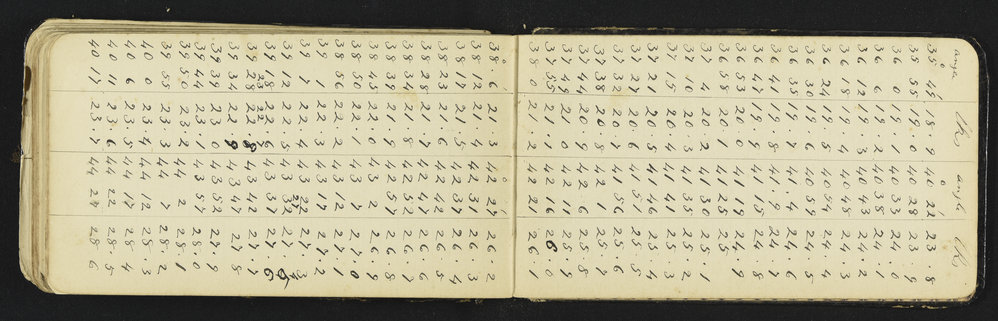 angle Vk angle Vk
35 45 18.9 40 22 23.8
35 55 19.0 40 28 23.9
36 0 19.1 40 33 24.0
36 6 19.2 40 38 24.1
36 12 19.3 40 43 24.2
36 18 19.4 40 48 24.3
36 24 19.5 40 54 24.4
36 30 19.6 40 59 24.5
36 35 19.7 41 4 24.6
36 41 19.8 41 9 24.7
36 47 19.9 41 15 24.8
36 53 20.0 41 19 24.9
36 58 20.1 41 25 25.0
37 4 20.2 41 30 25.1
37 10 20.3 41 35 25.2
37 15 20.4 41 41 25.3
37 21 20.5 41 46 25.4
37 27 20.6 41 51 25.5
37 32 20.7 41 56 25.6
37 38 20.8 42 1 25.7
37 44 20.9 42 6 25.8
37 49 21.0 42 11 25.9
37 55 21.1 42 16 26.0
38 0 21.2 42 21 26.1
38 6 21.3 42 27 26.2
38 12 21.4 42 31 26.3
38 17 21.5 42 37 26.4
38 23 21.6 42 42 26.5
38 28 21.7 42 47 26.6
38 34 21.8 42 52 26.7
38 39 21.9 42 57 26.8
38 45 22.0 43 2 26.9
38 50 22.1 43 7 27.0
38 56 22.2 43 12 27.1
39 1 22.3 43 17 27.2
39 7 22.4 43 22 27.3
39 12 22.5 43 32
39 18 22.6 43 37 27.6
39 28 22.8 43 42 27.7
39 34 22.9 43 47 27.8
39 39 23.0 43 52 27.9
39 44 23.1 43 57 28.0
39 50 23.2 44 2 28.1
39 55 23.3 44 7 28.2
40 0 23.4 44 12 28.3
40 6 23.5 44 17 28.4
40 11 23.6 44 22 28.5
40 17 23.7 44 27 28.6